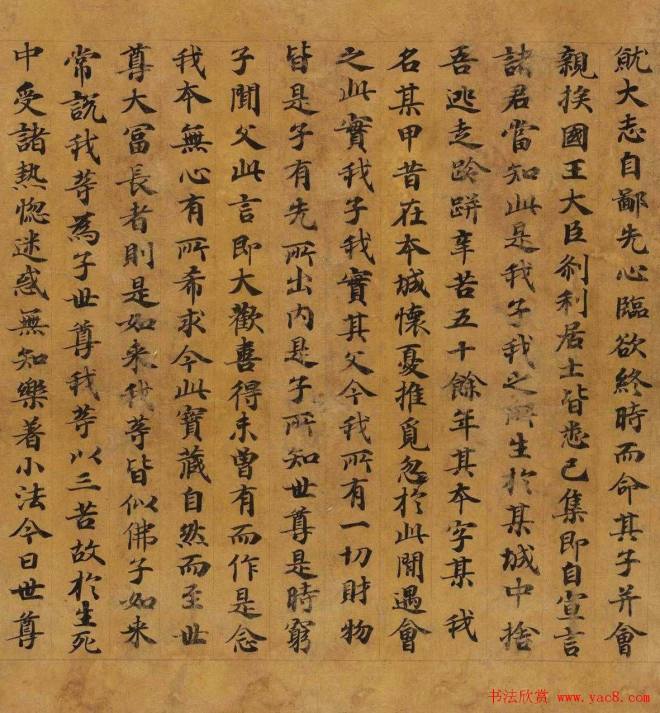 就大志自鄙先心臨欲終時而命其子并會
親挨國王大臣刹利居士皆悉已集即自宣言
諸君當知此是我子我之所生於某城中捨
吾逃走跉跰辛苦五十餘年其本字某我
名某甲昔在本城懷憂推覓忽於此間遇會
之此實我子我實其父今我所有一切財物
皆是子有先所出内是子所知世尊是時窮
子聞父此言即大歡喜得未曾有而作是念
我本無心有所希求今此寶藏自然而至世
尊大富長者則是如来我等皆似佛子如来
常説我等為子世尊我等以三苦故於生死
中受諸熱惚迷惑無知樂著小法今日世尊
书法欣赏 www.yac8.com